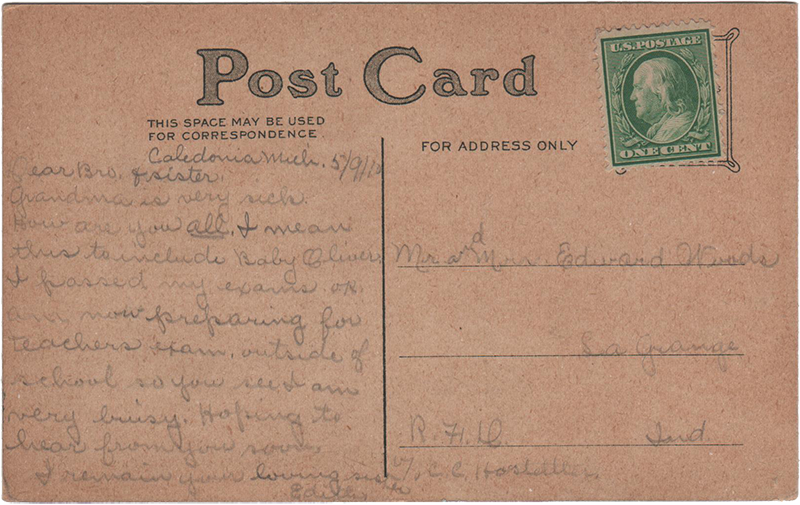 Post Card
U.S. POSTAGE
ONE CENT
THIS SPACE MAY BE USED
FOR CORRESPONDENCE.
FOR ADDRESS ONLY
Caledonia Mich. 5/9/10
Dear Bro. & sister.
Grandma is very sick
How are you all. I mean
this to include Baby Oliver,
I passed my exams. ok.
am now preparing for
teachers exam. outside of
school so you see I am
very busy. Hoping to
hear from you soon.
I remain your loving sister
Mr and Mrs Edward Woods
La Grange
Ind.
C. C.